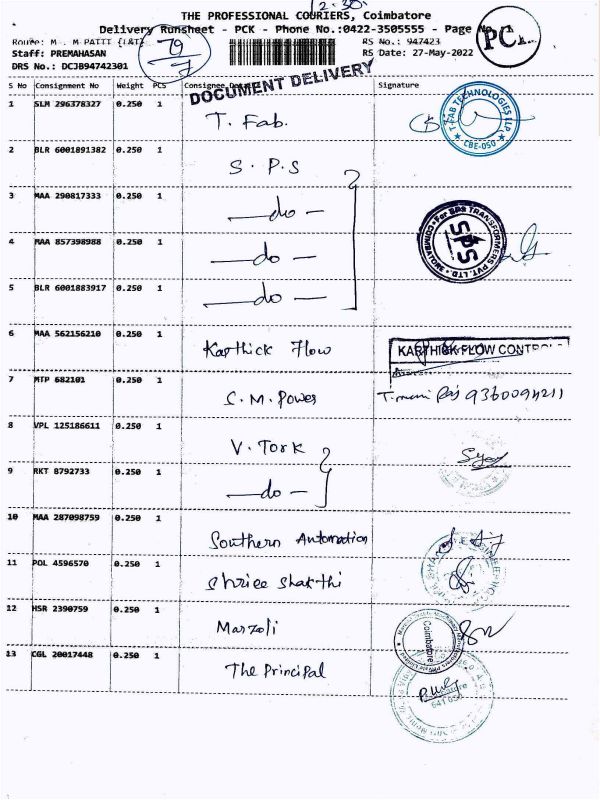 12.30
THE PROFESSIONAL COURIERS, Coimbatore
Delivery Runsheet - PCK - Phone No.:0422-3505555 - Page No
PCK
RS No.: 947423
Staff: PREMAHASAN
RS Date: 27-May-2022
DRS No.: DCJB94742301
79
7
DOCUMENT DELIVERY
S No Consignment No Weight PCS Consignee Signature
1 SLM 296378327 0.250 1 T. Fab.
T FAB TECHNOLOGIES LLP CBE-050
2 BLR 6001891382 0.250 1 S. P. S
3 MAA 290817333 0.250 1 —do—
For SPS TRANSFORMERS PVT. LTD. COIMBATORE SPS
4 MAA 857398988 0.250 1 —do—
5 BLR 6001883917 0.250 1 —do—
6 MAA 562156210 0.250 1 Karthick Flow KARTHICK FLOW CONTROL
7 MTP 682101 0.250 1 C. M. Power
8 VPL 125186611 0.250 1 V. Tork
9 RKT 8792733 0.250 1 —do—
10 MAA 287098759 0.250 1 Southern Automation
11 POL 4596570 0.250 1 Shriee Shakthi
12 HSR 2390759 0.250 1 Marzoli Coimbatore
13 CGL 20017448 0.250 1 The Principal